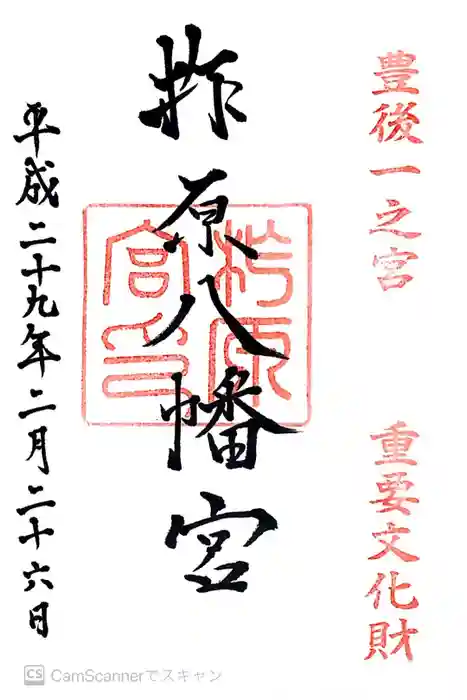 豊後一之宮
重要文化財
柞原八幡宮
柞原
宮印
平成二十九年二月二十六日
CamScannerでスキャン